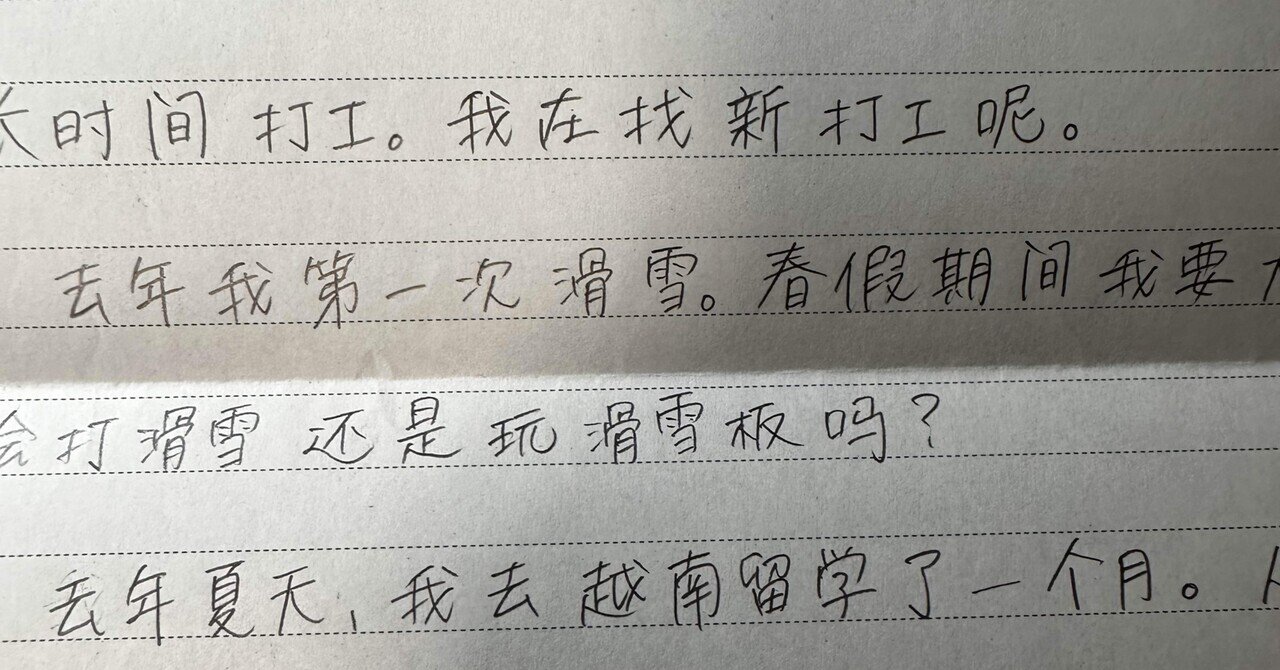 长时间打工。我在找新打工呢。
去年我第一次滑雪。春假期间我要
会打滑雪还是玩滑雪板吗？
去年夏天,我去越南留学了一个月。